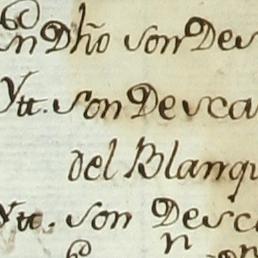 en Dho son Des
Ytt. son Desca
del Blanqu
Ytt. son Desc